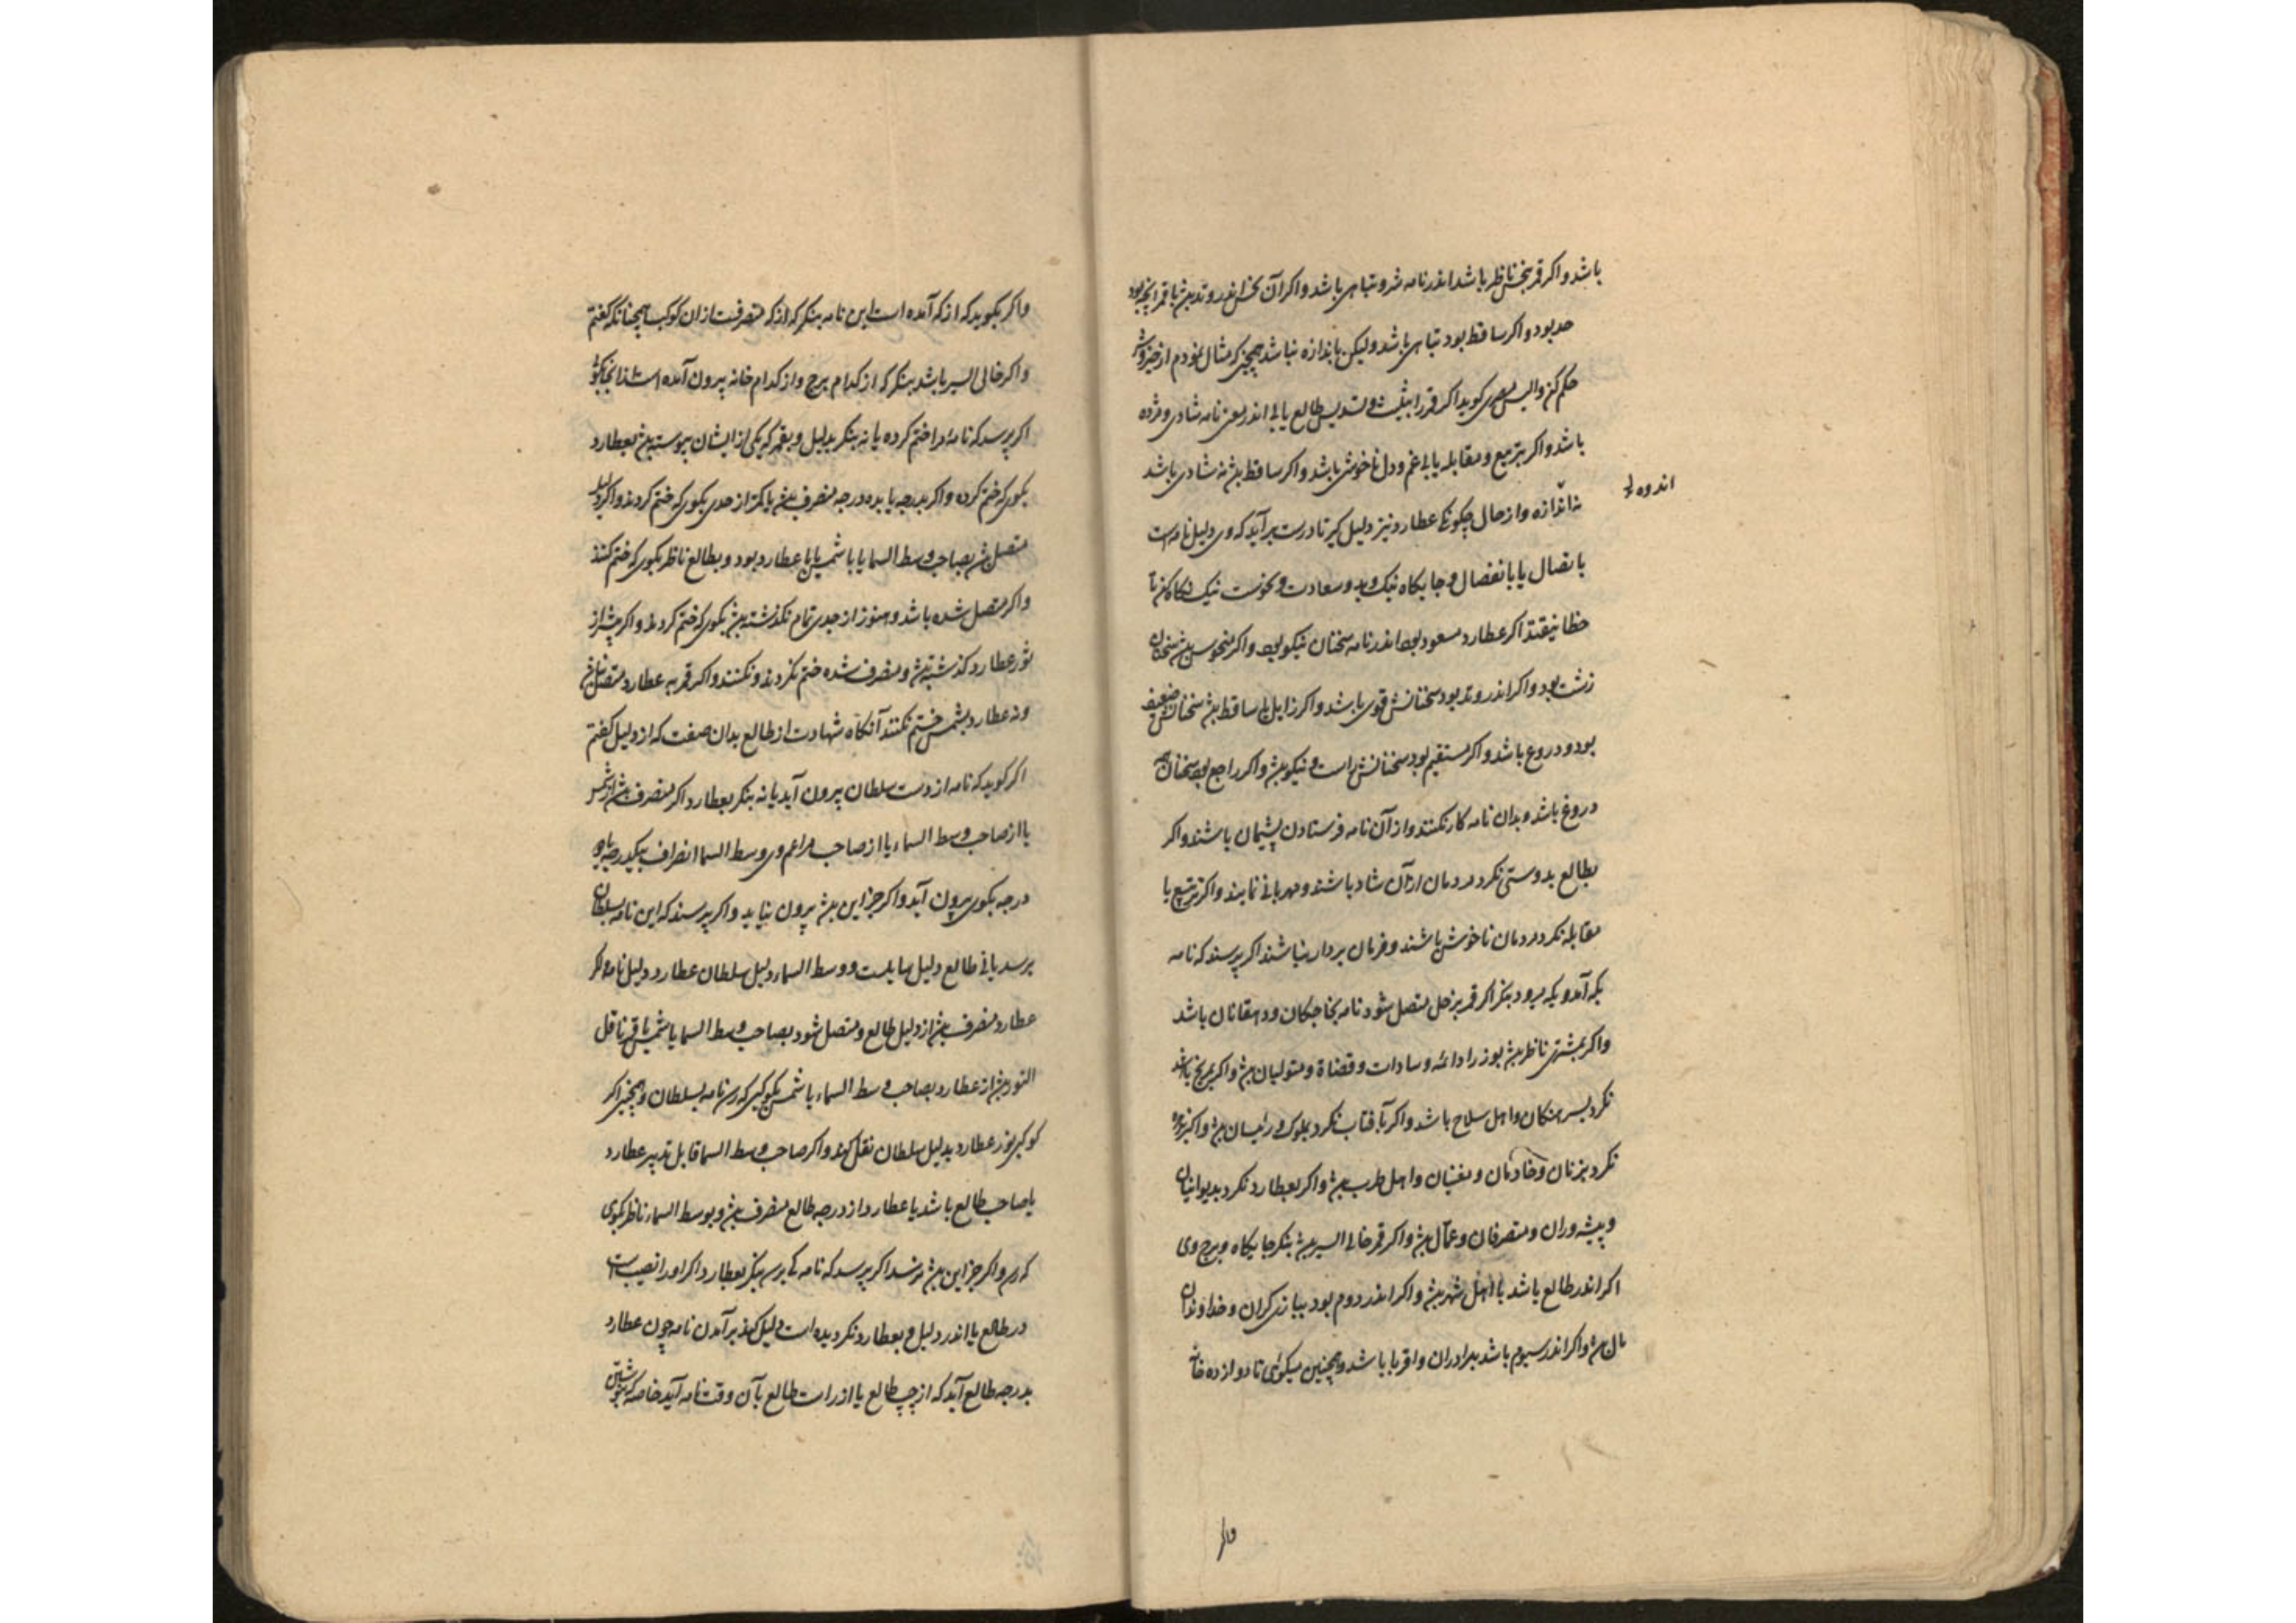 باشد و اکر قمر بنحس ناظر باشد اندر نامه شر و تباهی باشد و اکر آن نحس اندر وتد بیش با قمر
حد بود و اکر ساقط بود تباهی باشد و لیکن باندازه نباشد همچنین که مثال نمودم از خیر و شر
حکم کن و الیس همی کوید اکر قمر را بتثلیث و تسدیس طالع یابی اندر معنی نامه شادی و مژده
باشد و اکر بتربیع و مقابله یابی غم و دل ناخوشی باشد و اکر ساقط بیش نه شادی باشد
نه اندازه و از حال چکونکی عطارد نیز دلیل کیر تا درست برآید که وی دلیل نامه است
اندوه
باتصال یا بانفصال و جایکاه نیک و بد و سعادت و نحوست نیک نکاه کن تا
خطا نیفتد اکر عطارد مسعود بود اندر نامه سخنان نیکو بود و اکر منحوس بیش سخنان
زشت بود و اکر اندر وتد بود سخنانش قوی باشد و اکر زایل یا ساقط بیش سخنانش ضعیف
بود و دروغ باشد و اکر مستقیم بود سخنانش راست و نیکو بیش و اکر راجع بود سخنان
دروغ باشد و بدان نامه کار نکنند و از آن نامه فرستادن پشیمان باشند و اکر
بطالع بدوستی نکرد مردمان ازآن شاد باشند و مهربانی نمایند و اکر بتربیع یا
مقابله نکرد مردمان ناخوش باشند و فرمان بردار نباشند اکر پرسند که نامه
بکه آمد و بکه برود بنکر اکر قمر بزحل متصل شود نامه بخاجکان و دهقانان باشد
و اکر بمشتری ناظر بیش بوزرا و ائمه و سادات و قضاة و متولیان بیش و اکر بمریخ باشد
نکرد بسرهنکان و اهل سلاح باشد و اکر بآفتاب نکرد بملوک و رئیسان بیش و اکر بزهره
نکرد بزنان و خادمان و مغنیان و اهل طرب بیش و اکر بعطارد نکرد بدیوانیان
و پیشه وران و متصرفان و عمال بیش و اکر قمر خالی السیر بیش بنکر جایکاه و برج وی
اکر اندر طالع باشد با اهل شهر بیش و اکر اندر دوم بود ببازرکان و خداوندان
مال بیش و اکر اندر سیوم باشد ببرادران و اقربا باشد و همچنین میکوئی تا دوازده خانه
واکر
واکر بکوید که از که آمده است این نامه بنکر که از که منصرفست ازان کوکب همچنانکه کفتم
واکر خالی السیر باشد بنکر که از کدام برج و از کدام خانه بیرون آمده است ازانجا بکو
اکر پرسد که نامه را ختم کرده یا نه بنکر بدلیل و بقمر که یکی از ایشان پیوسته بیش بعطارد
بکوی که ختم کرده و اکر بدرجه یا بده درجه منصرف بیش یا کمتر از حدی بکوی که ختم کردند و اکر دلیل
متصل بیش بصاحب وسط السما یا با شمس یا با عطارد بود و بطالع ناظر بکوی که ختم کنند
واکر متصل شده باشد و هنوز از حدی تمام نکذشته بیش بکوی که ختم کردند و اکر بیش از
نور عطارد کذشته بیش و منصرف شده ختم نکردند و نکنند و اکر قمر به عطارد متصل نباشد
و نه عطارد بشمس ختم نکنند آنکاه شهادت از طالع بدان صفت که از دلیل کفتم
اکر کوید که نامه از دست سلطان بیرون آید یا نه بنکر بعطارد اکر منصرف بیش از شمس
یا از صاحب وسط السماء یا از صاحب وسط السما انصراف بیکدرجه یا دو
درجه بکوی بیرون آید و اکر جز این بیش بیرون نیاید و اکر پرسند که این نامه بسلطان
برسد یا نی طالع دلیل سایلست و وسط السماء دلیل سلطان عطارد دلیل نامه اکر
عطارد منصرف بیش از دلیل طالع و متصل شود بصاحب وسط السما یا شمس یا قمر ناقل
النور بیش از عطارد بصاحب وسط السماء یا شمس بکوی که رسد نامه بسلطان و همچنین اکر
کوکبی نور عطارد بدلیل سلطان نقل کند و اکر صاحب وسط السما قابل تدبیر عطارد
یا صاحب طالع باشد یا عطارد از درجه طالع منصرف بیش و بوسط السماء ناظر بکوی
که رسد و اکر جز این بیش نرسد اکر پرسد که نامه کی برسد بنکر بعطارد اکر او را نصیب است
در طالع یا اندر دلیل و بعطارد نکردیده است دلیل کند برآمدن نامه چون عطارد
بدرجه طالع آید که از چپ طالع یا از راست طالع بآن وقت نامه آید خاصه که